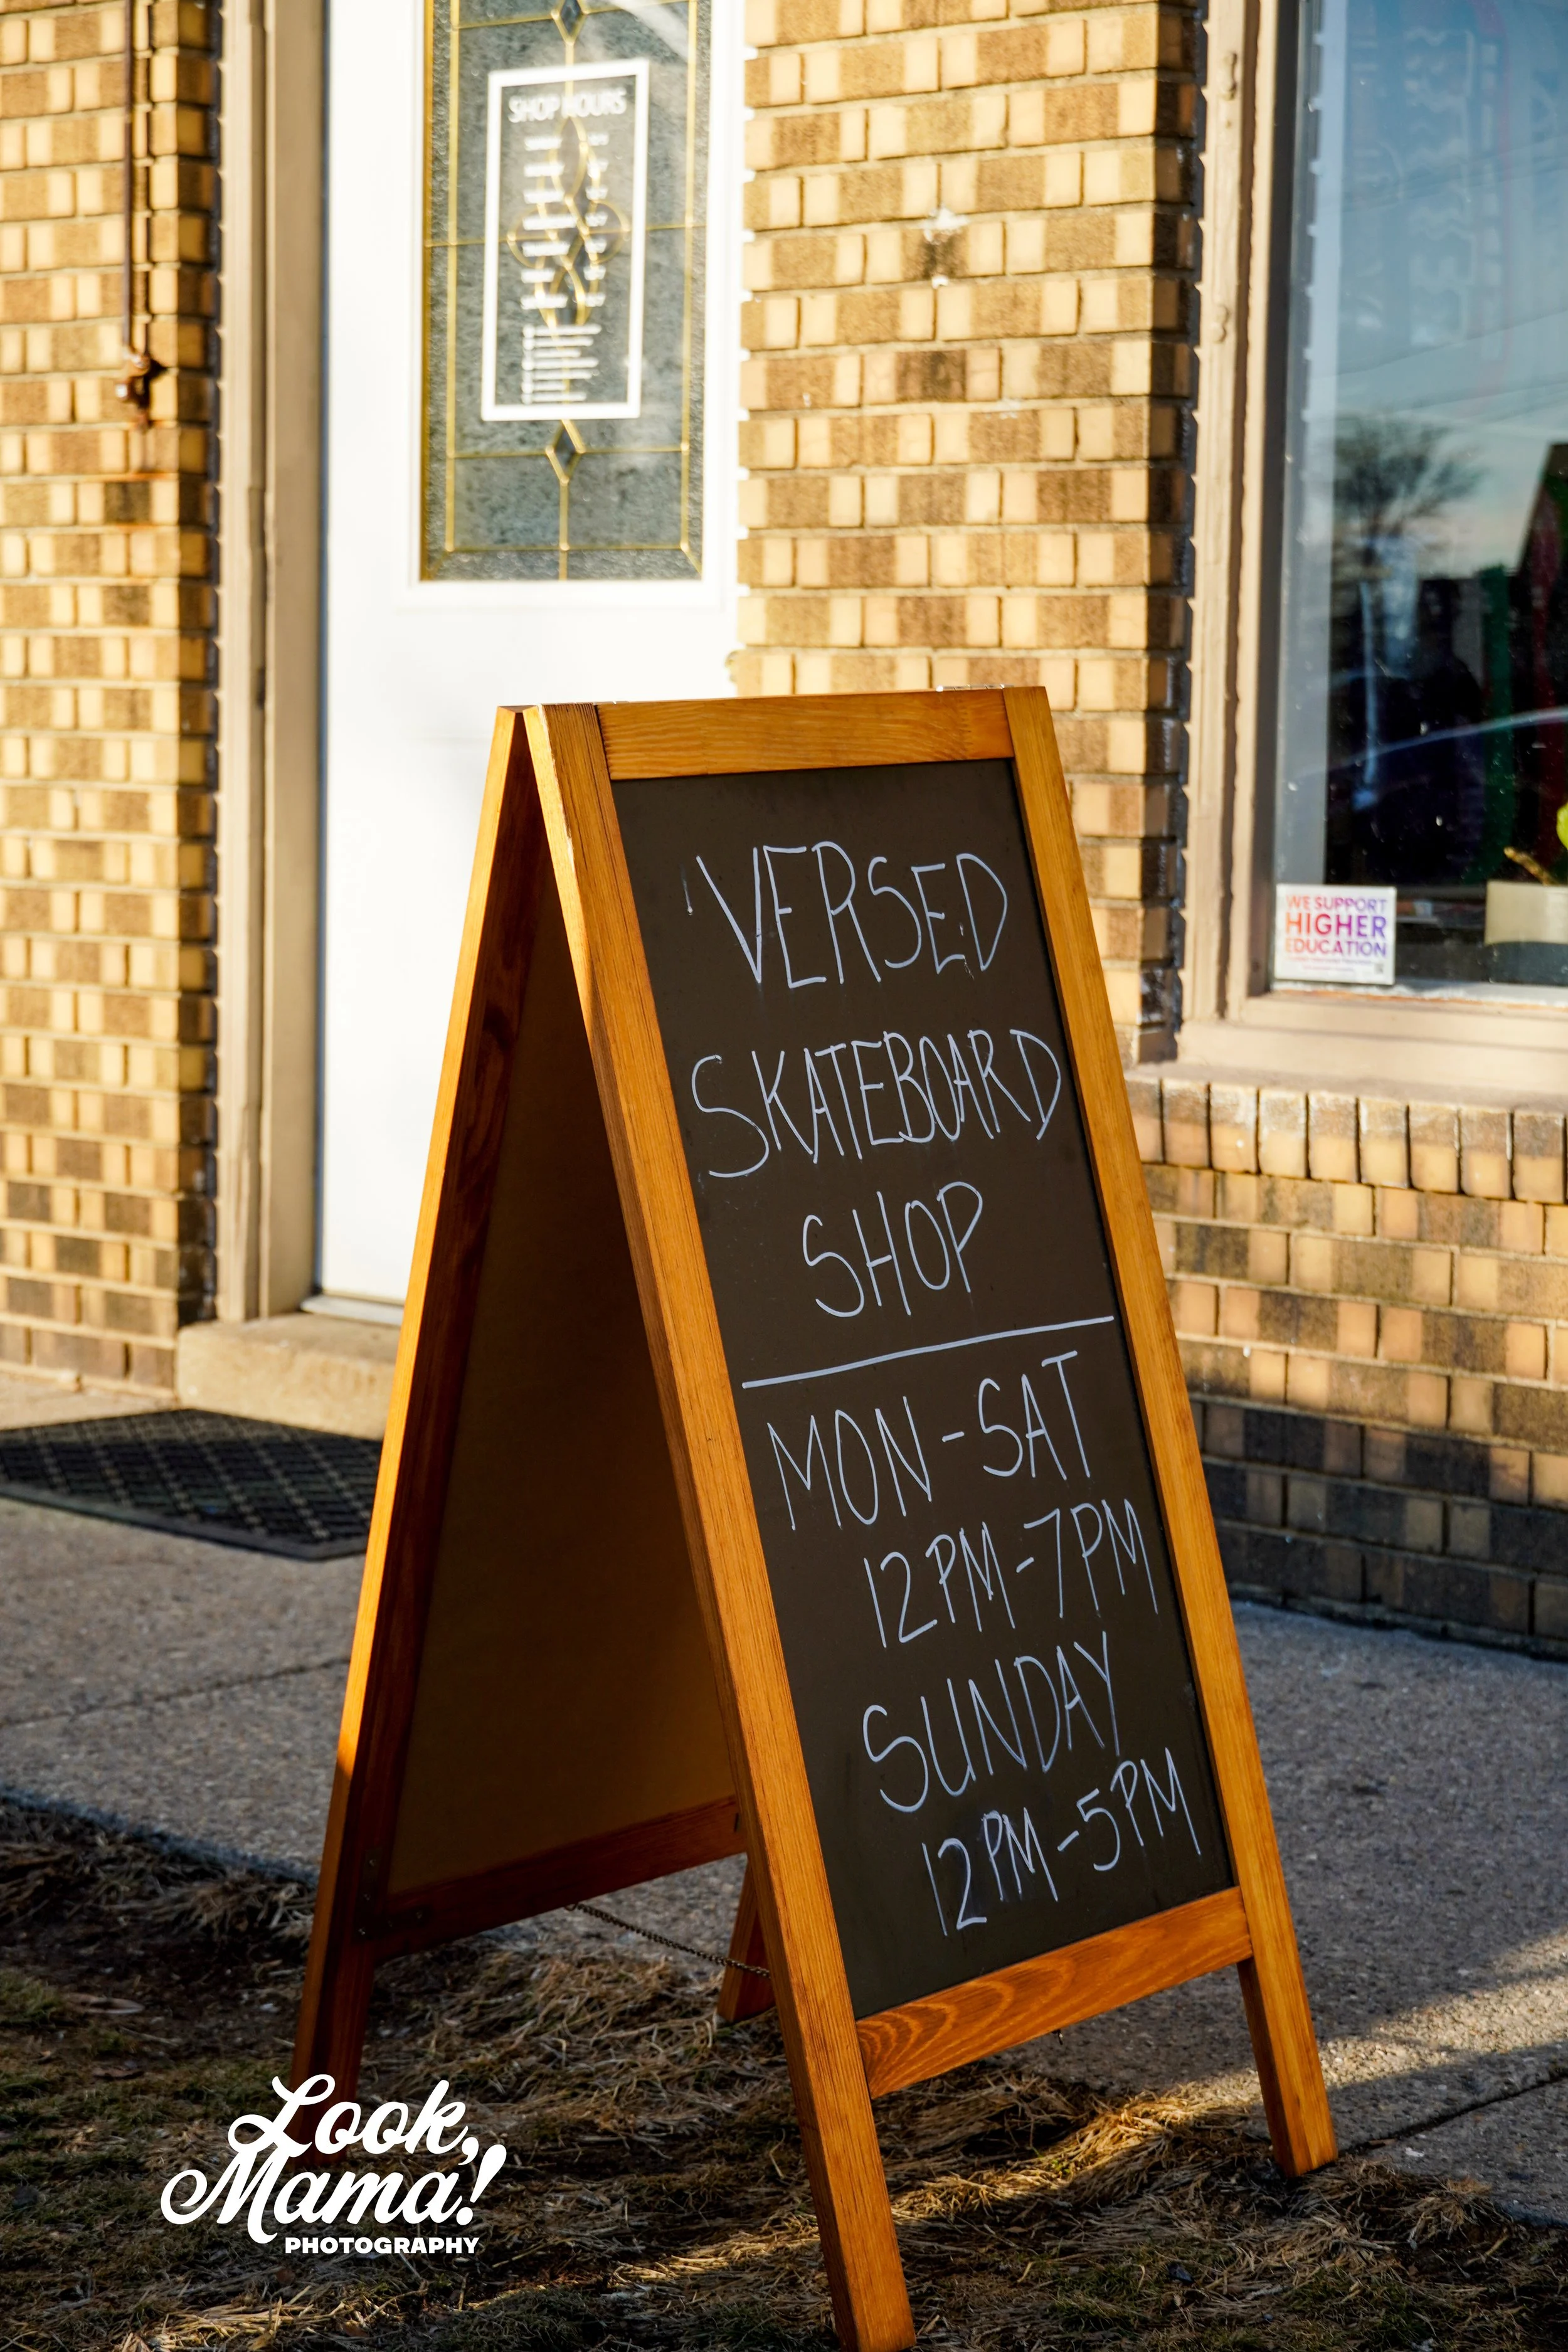 SHOP HOURS
WE SUPPORT
HIGHER
EDUCATION
VERSED
SKATEBOARD
SHOP
MON-SAT
12PM-7PM
SUNDAY
12PM-5PM
Look,
Mama!
PHOTOGRAPHY